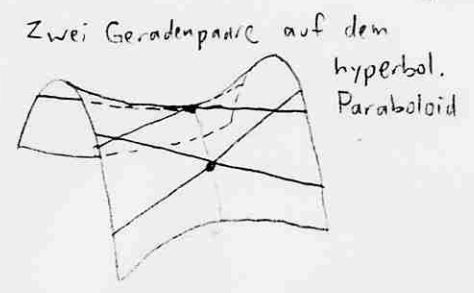 Zwei Geradenpaare auf dem
hyperbol.
Paraboloid